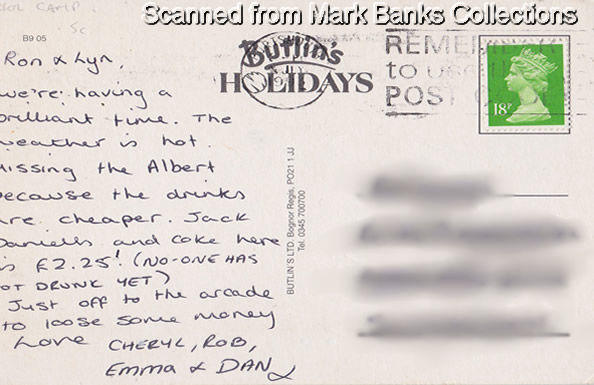 Scanned from Mark Banks Collections
B9 05
Ron & Lyn,
we're having a
brilliant time. The
weather is hot.
Missing the Albert
because the drunks
are cheaper. Jack
Daniells and coke here
is £2.25! (NO-ONE HAS
GOT DRUNK YET)
Just off to the arcade
to loose some money
Love CHERYL, ROB,
Emma & DAN
Butlin's
HOLIDAYS
REMEMBER
to use the
POST
18P
BUTLIN'S LTD. Bognor Regis. PO21 1 JJ
Tel. 0345 700700